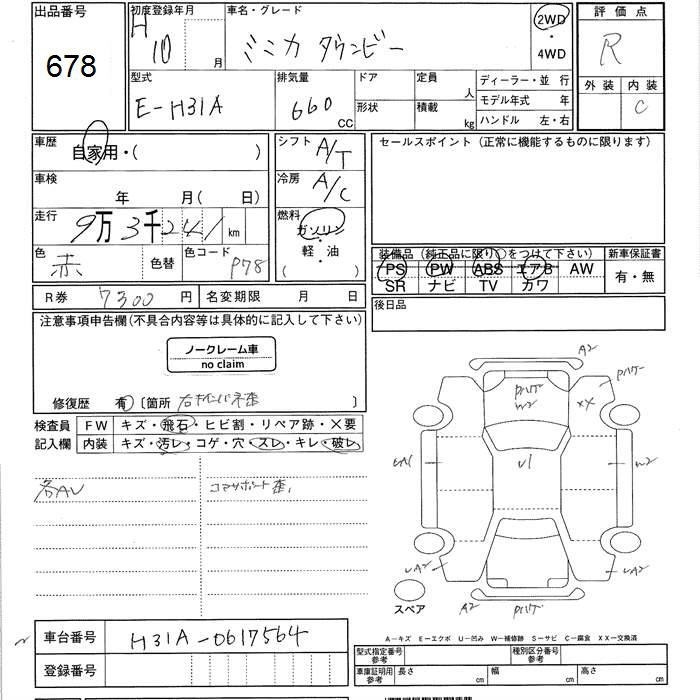 出品番号
678
初度登録年月
H 10 月
車名・グレード
ミニカ タウンビー
2WD
・
4WD
評価点
R
外装 内装
C
型式
E-H31A
排気量
660 CC
ドア
形状
定員 人
積載 kg
ディーラー・並 行
モデル年式 年
ハンドル 左・右
車歴
自家用・( )
シフト A/T
セールスポイント (正常に機能するものに限ります)
車検
年 月( 日)
冷房 A/C
走行
9万3千241km
燃料
ガソリン
軽・油
( )
色
赤 色替
色コード
P78
装備品 (純正品に限り○をつけて下さい)
新車保証書
PS PW ABS エアB AW
SR ナビ TV カワ
有・無
R券 7300円
名変期限 月 日
後日品
注意事項申告欄(不具合内容等は具体的に記入して下さい)
ノークレーム車
no claim
修復歴 有 〔箇所 〕
検査員 FW キズ・飛石・ヒビ割・リペア跡・X要
記入欄 内装 キズ・汚レ・コゲ・穴・スレ・キレ・破レ
コアサポート歪
A2
W2
XX
U1
W2
UA2
UA2
A2
スペア
A-キズ E-エクボ U-凹み W-補修跡 S-サビ C-腐食 XX-交換済
車台番号 H31A-0617564
登録番号
型式指定番号
参考
種別区分番号
参考
車庫証明用
参考
長さ cm 幅 cm 高さ cm